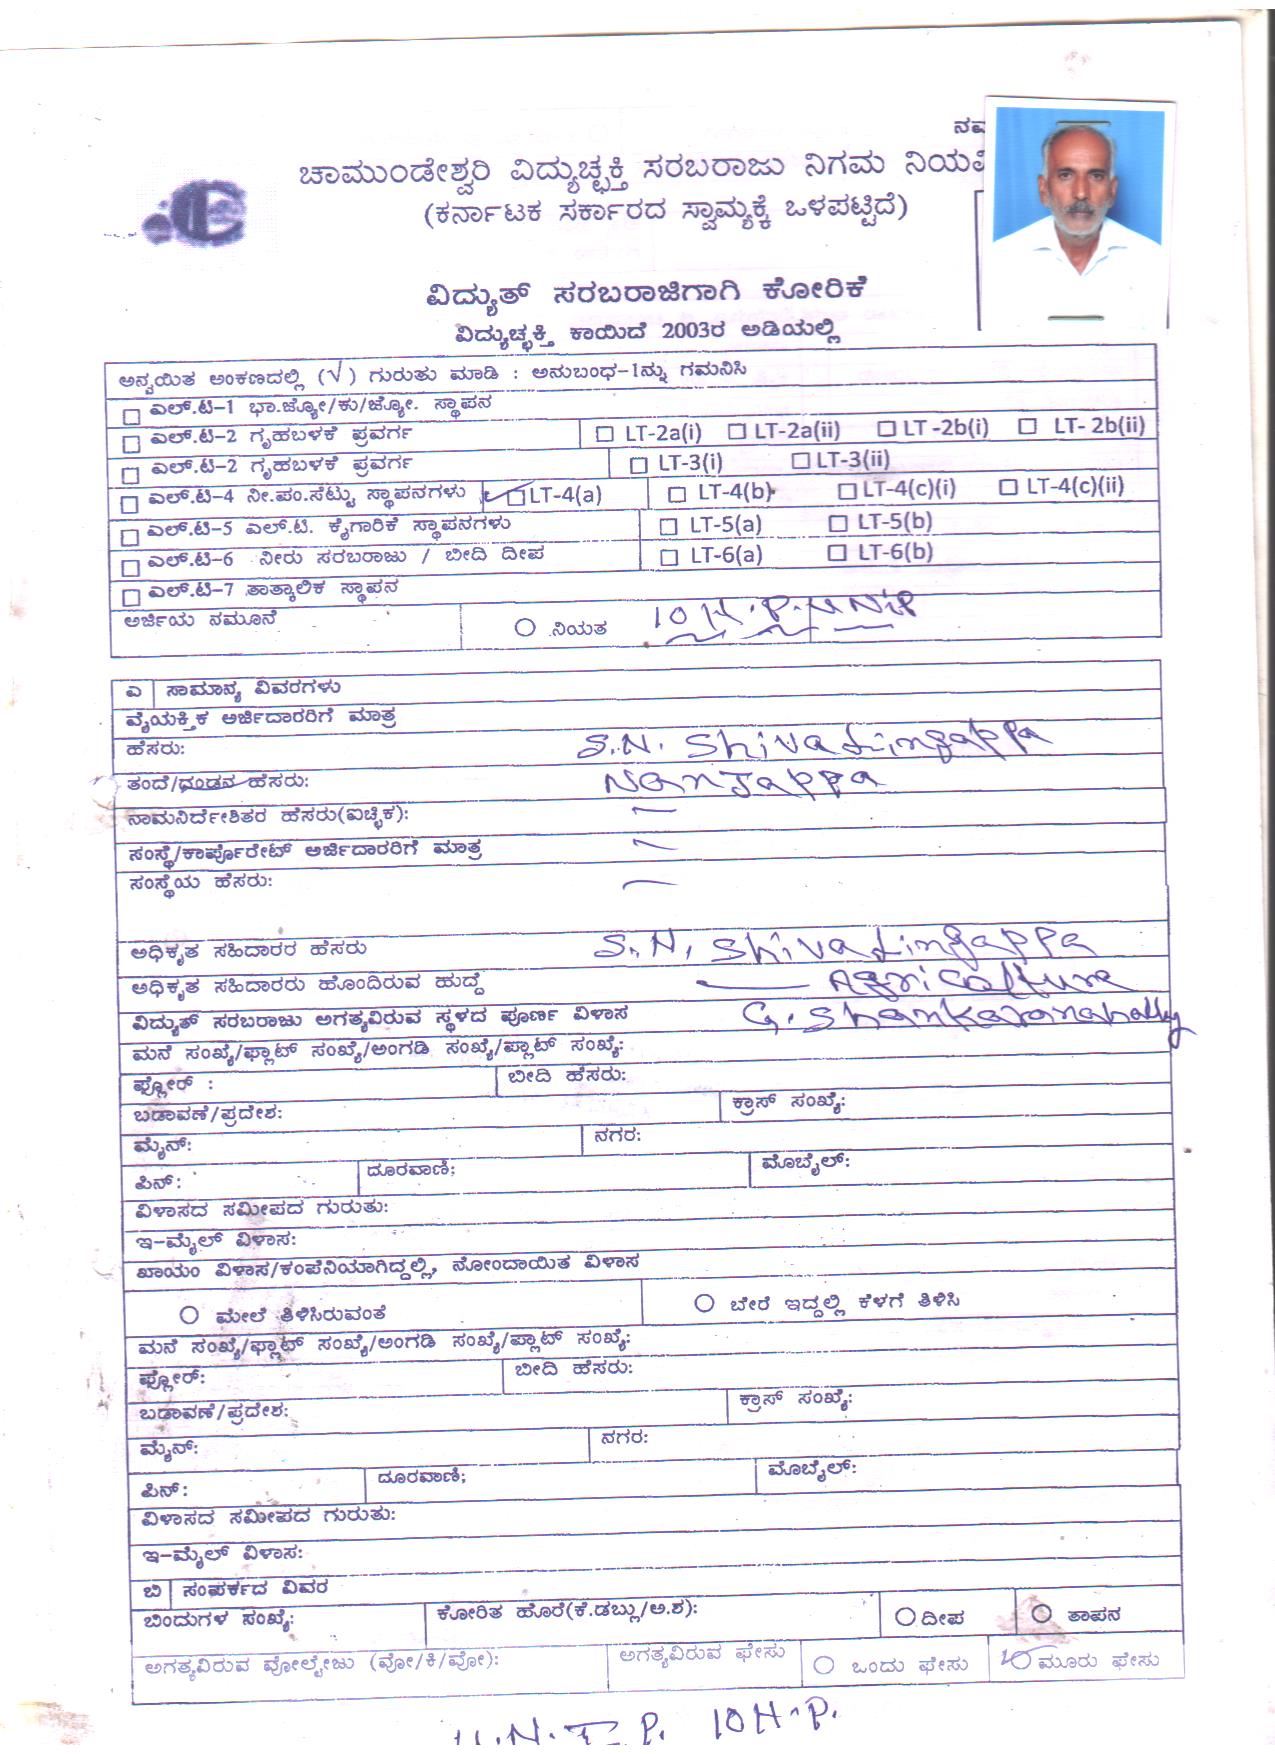 ಚಾಮುಂಡೇಶ್ವರಿ ವಿದ್ಯುಚ್ಛಕ್ತಿ ಸರಬರಾಜು ನಿಗಮ
(ಕರ್ನಾಟಕ ಸರ್ಕಾರದ ಸ್ವಾಮ್ಯಕ್ಕೆ ಒಳಪಟ್ಟಿದೆ)
ವಿದ್ಯುತ್ ಸರಬರಾಜಿಗಾಗಿ ಕೋರಿಕೆ
ವಿದ್ಯುಚ್ಛಕ್ತಿ ಕಾಯಿದೆ 2003ರ ಅಡಿಯಲ್ಲಿ
ಅನ್ವಯಿತ ಅಂಕಣದಲ್ಲಿ (√) ಗುರುತು ಮಾಡಿ : ಅನುಬಂಧ-1ನ್ನು ಗಮನಿಸಿ
ಎಲ್.ಟಿ-1 ಭಾ.ಜ್ಯೋ/ಕು/ಜ್ಯೋ. ಸ್ಥಾಪನ
ಎಲ್.ಟಿ-2 ಗೃಹಬಳಕೆ ಪ್ರವರ್ಗ LT-2a(i) LT-2a(ii) LT -2b(i) LT- 2b(ii)
ಎಲ್.ಟಿ-2 ಗೃಹಬಳಕೆ ಪ್ರವರ್ಗ LT-3(i) LT-3(ii)
ಎಲ್.ಟಿ-4 ನೀ.ಪಂ.ಸೆಟ್ಟು ಸ್ಥಾಪನಗಳು LT-4(a) LT-4(b) LT-4(c)(i) LT-4(c)(ii)
ಎಲ್.ಟಿ-5 ಎಲ್.ಟಿ. ಕೈಗಾರಿಕೆ ಸ್ಥಾಪನಗಳು LT-5(a) LT-5(b)
ಎಲ್.ಟಿ-6 ನೀರು ಸರಬರಾಜು / ಬೀದಿ ದೀಪ LT-6(a) LT-6(b)
ಎಲ್.ಟಿ-7 ತಾತ್ಕಾಲಿಕ ಸ್ಥಾಪನ
ಅರ್ಜಿಯ ನಮೂನೆ ನಿಯತ 10 H.P.
ಎ ಸಾಮಾನ್ಯ ವಿವರಗಳು
ವೈಯಕ್ತಿಕ ಅರ್ಜಿದಾರರಿಗೆ ಮಾತ್ರ
ಹೆಸರು: S.N. Shivalingappa
ತಂದೆ/ಗಂಡನ ಹೆಸರು: Nanjappa
ನಾಮನಿರ್ದೇಶಿತರ ಹೆಸರು(ಐಚ್ಛಿಕ):
ಸಂಸ್ಥೆ/ಕಾರ್ಪೊರೇಟ್ ಅರ್ಜಿದಾರರಿಗೆ ಮಾತ್ರ
ಸಂಸ್ಥೆಯ ಹೆಸರು:
ಅಧಿಕೃತ ಸಹಿದಾರರ ಹೆಸರು S.N. Shivalingappa
ಅಧಿಕೃತ ಸಹಿದಾರರು ಹೊಂದಿರುವ ಹುದ್ದೆ Agriculture
ವಿದ್ಯುತ್ ಸರಬರಾಜು ಅಗತ್ಯವಿರುವ ಸ್ಥಳದ ಪೂರ್ಣ ವಿಳಾಸ G. Shankaranahally
ಮನೆ ಸಂಖ್ಯೆ/ಫ್ಲಾಟ್ ಸಂಖ್ಯೆ/ಅಂಗಡಿ ಸಂಖ್ಯೆ/ಪ್ಲಾಟ್ ಸಂಖ್ಯೆ:
ಫ್ಲೋರ್ : ಬೀದಿ ಹೆಸರು:
ಬಡಾವಣೆ/ಪ್ರದೇಶ: ಕ್ರಾಸ್ ಸಂಖ್ಯೆ:
ಮೈನ್: ನಗರ:
ಪಿನ್: ದೂರವಾಣಿ: ಮೊಬೈಲ್:
ವಿಳಾಸದ ಸಮೀಪದ ಗುರುತು:
ಇ-ಮೈಲ್ ವಿಳಾಸ:
ಖಾಯಂ ವಿಳಾಸ/ಕಂಪೆನಿಯಾಗಿದ್ದಲ್ಲಿ, ನೋಂದಾಯಿತ ವಿಳಾಸ
ಮೇಲೆ ತಿಳಿಸಿರುವಂತೆ ಬೇರೆ ಇದ್ದಲ್ಲಿ ಕೆಳಗೆ ತಿಳಿಸಿ
ಮನೆ ಸಂಖ್ಯೆ/ಫ್ಲಾಟ್ ಸಂಖ್ಯೆ/ಅಂಗಡಿ ಸಂಖ್ಯೆ/ಪ್ಲಾಟ್ ಸಂಖ್ಯೆ:
ಫ್ಲೋರ್: ಬೀದಿ ಹೆಸರು:
ಬಡಾವಣೆ/ಪ್ರದೇಶ: ಕ್ರಾಸ್ ಸಂಖ್ಯೆ:
ಮೈನ್: ನಗರ:
ಪಿನ್: ದೂರವಾಣಿ: ಮೊಬೈಲ್:
ವಿಳಾಸದ ಸಮೀಪದ ಗುರುತು:
ಇ-ಮೈಲ್ ವಿಳಾಸ:
ಬಿ ಸಂಪರ್ಕದ ವಿವರ
ಬಿಂದುಗಳ ಸಂಖ್ಯೆ: ಕೋರಿತ ಹೊರೆ(ಕೆ.ಡಬ್ಲು/ಅ.ಶ): ದೀಪ ತಾಪನ
ಅಗತ್ಯವಿರುವ ವೋಲ್ಟೇಜು (ವೋ/ಕಿ/ವೋ): ಅಗತ್ಯವಿರುವ ಫೇಸು ಒಂದು ಫೇಸು ಮೂರು ಫೇಸು
10 H.P.